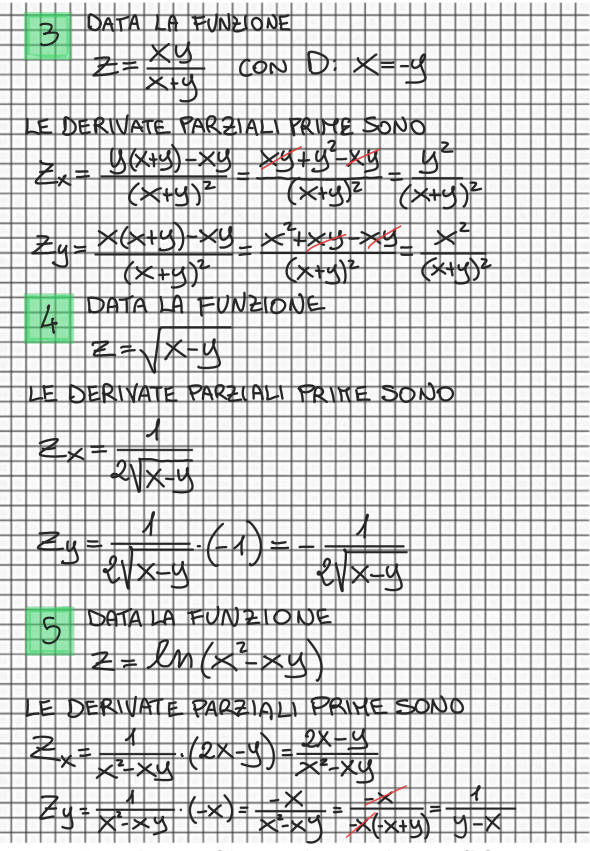 3 DATA LA FUNZIONE
Z = xy/(x+y) CON D: X=-y
LE DERIVATE PARZIALI PRIME SONO
Zx = (y(x+y)-xy)/(x+y)² = (xy+y²-xy)/(x+y)² = y²/(x+y)²
Zy = (x(x+y)-xy)/(x+y)² = (x²+xy-xy)/(x+y)² = x²/(x+y)²
4 DATA LA FUNZIONE
Z = √(x-y)
LE DERIVATE PARZIALI PRIME SONO
Zx = 1/(2√(x-y))
Zy = 1/(2√(x-y)) · (-1) = - 1/(2√(x-y))
5 DATA LA FUNZIONE
Z = ln(x²-xy)
LE DERIVATE PARZIALI PRIME SONO
Zx = 1/(x²-xy) · (2x-y) = (2x-y)/(x²-xy)
Zy = 1/(x²-xy) · (-x) = -x/(x²-xy) = -x/(-x(-x+y)) = 1/(y-x)